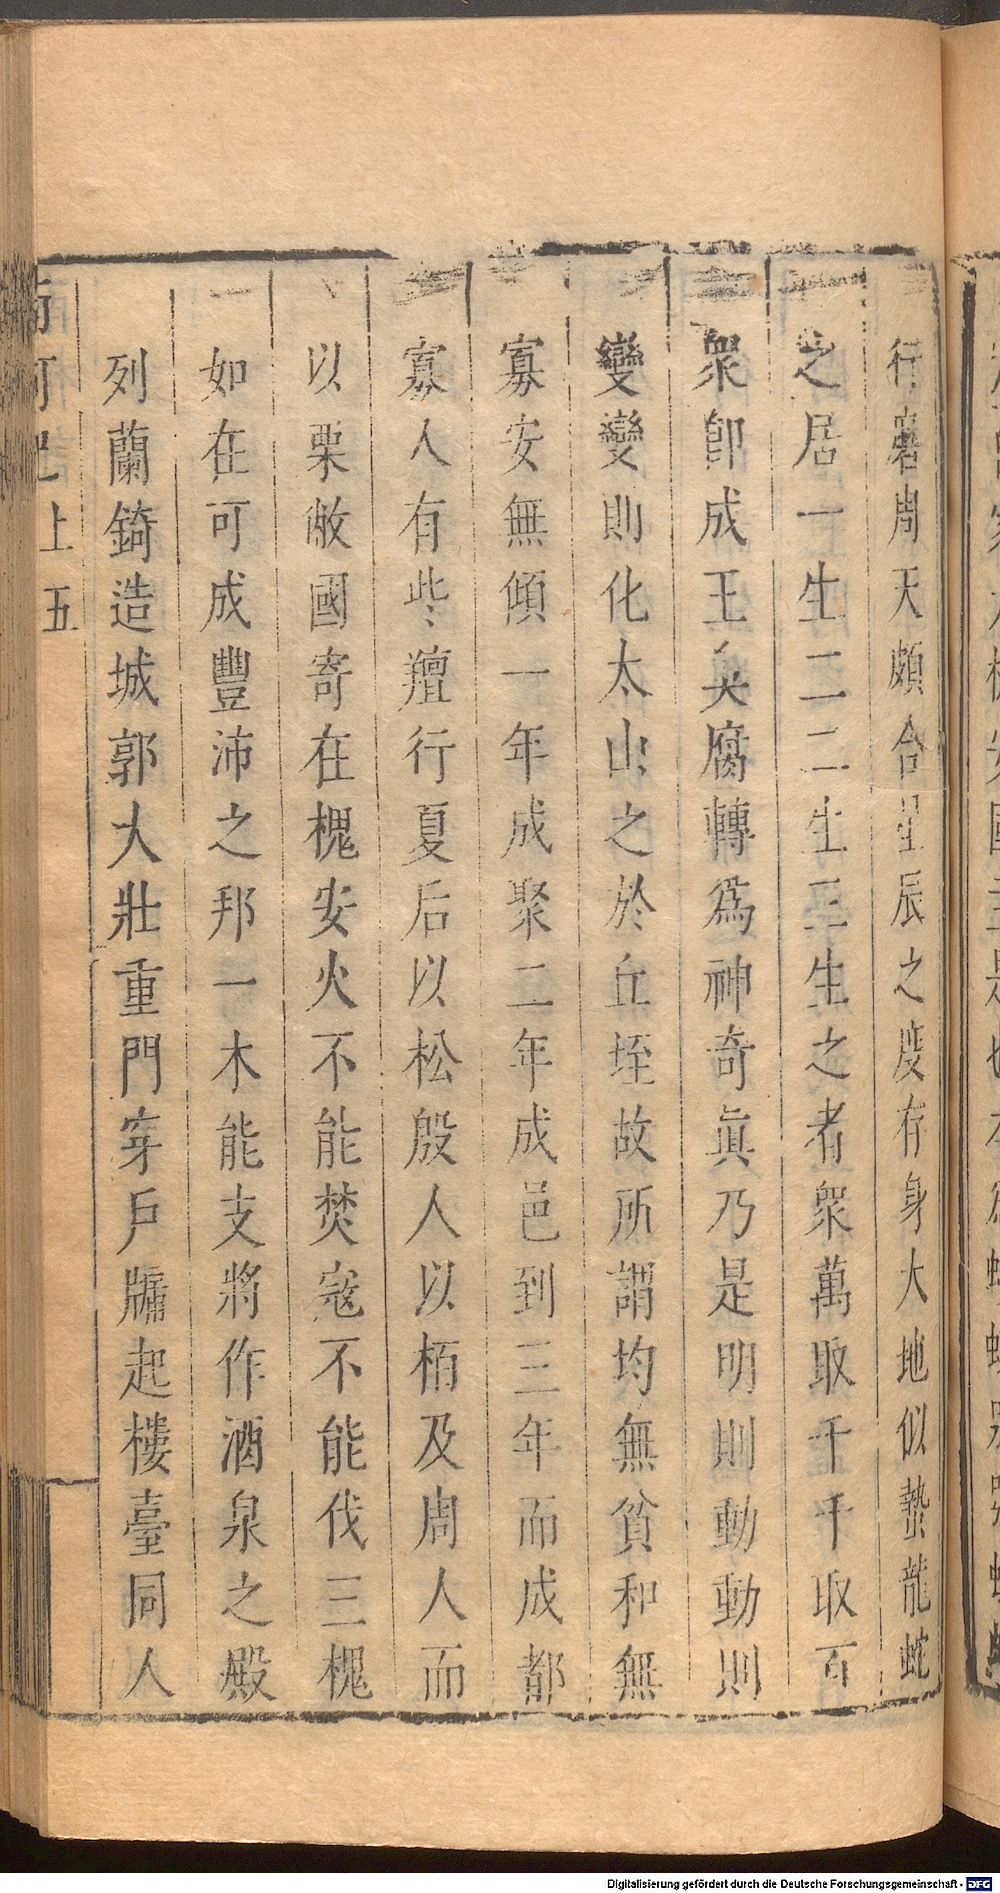 行磨周天頗合星辰之度存身大地似蟄龍蛇
之居一生二二生三生之者眾萬取千千取百
眾即成王臭腐轉為神奇眞乃是明則動動則
變變則化太山之於丘垤故所謂均無貧和無
寡安無傾一年成聚二年成邑到三年而成都
寡人有些羶行夏后以松殷人以栢及周人而
以栗敝國寄在槐安火不能焚寇不能伐三槐
如在可成豐沛之邦一木能支將作酒泉之殿
列蘭錡造城郭大壯重門穿戶牖起樓臺同人
南柯記上 五
Digitalisierung gefördert durch die Deutsche Forschungsgemeinschaft - DFG